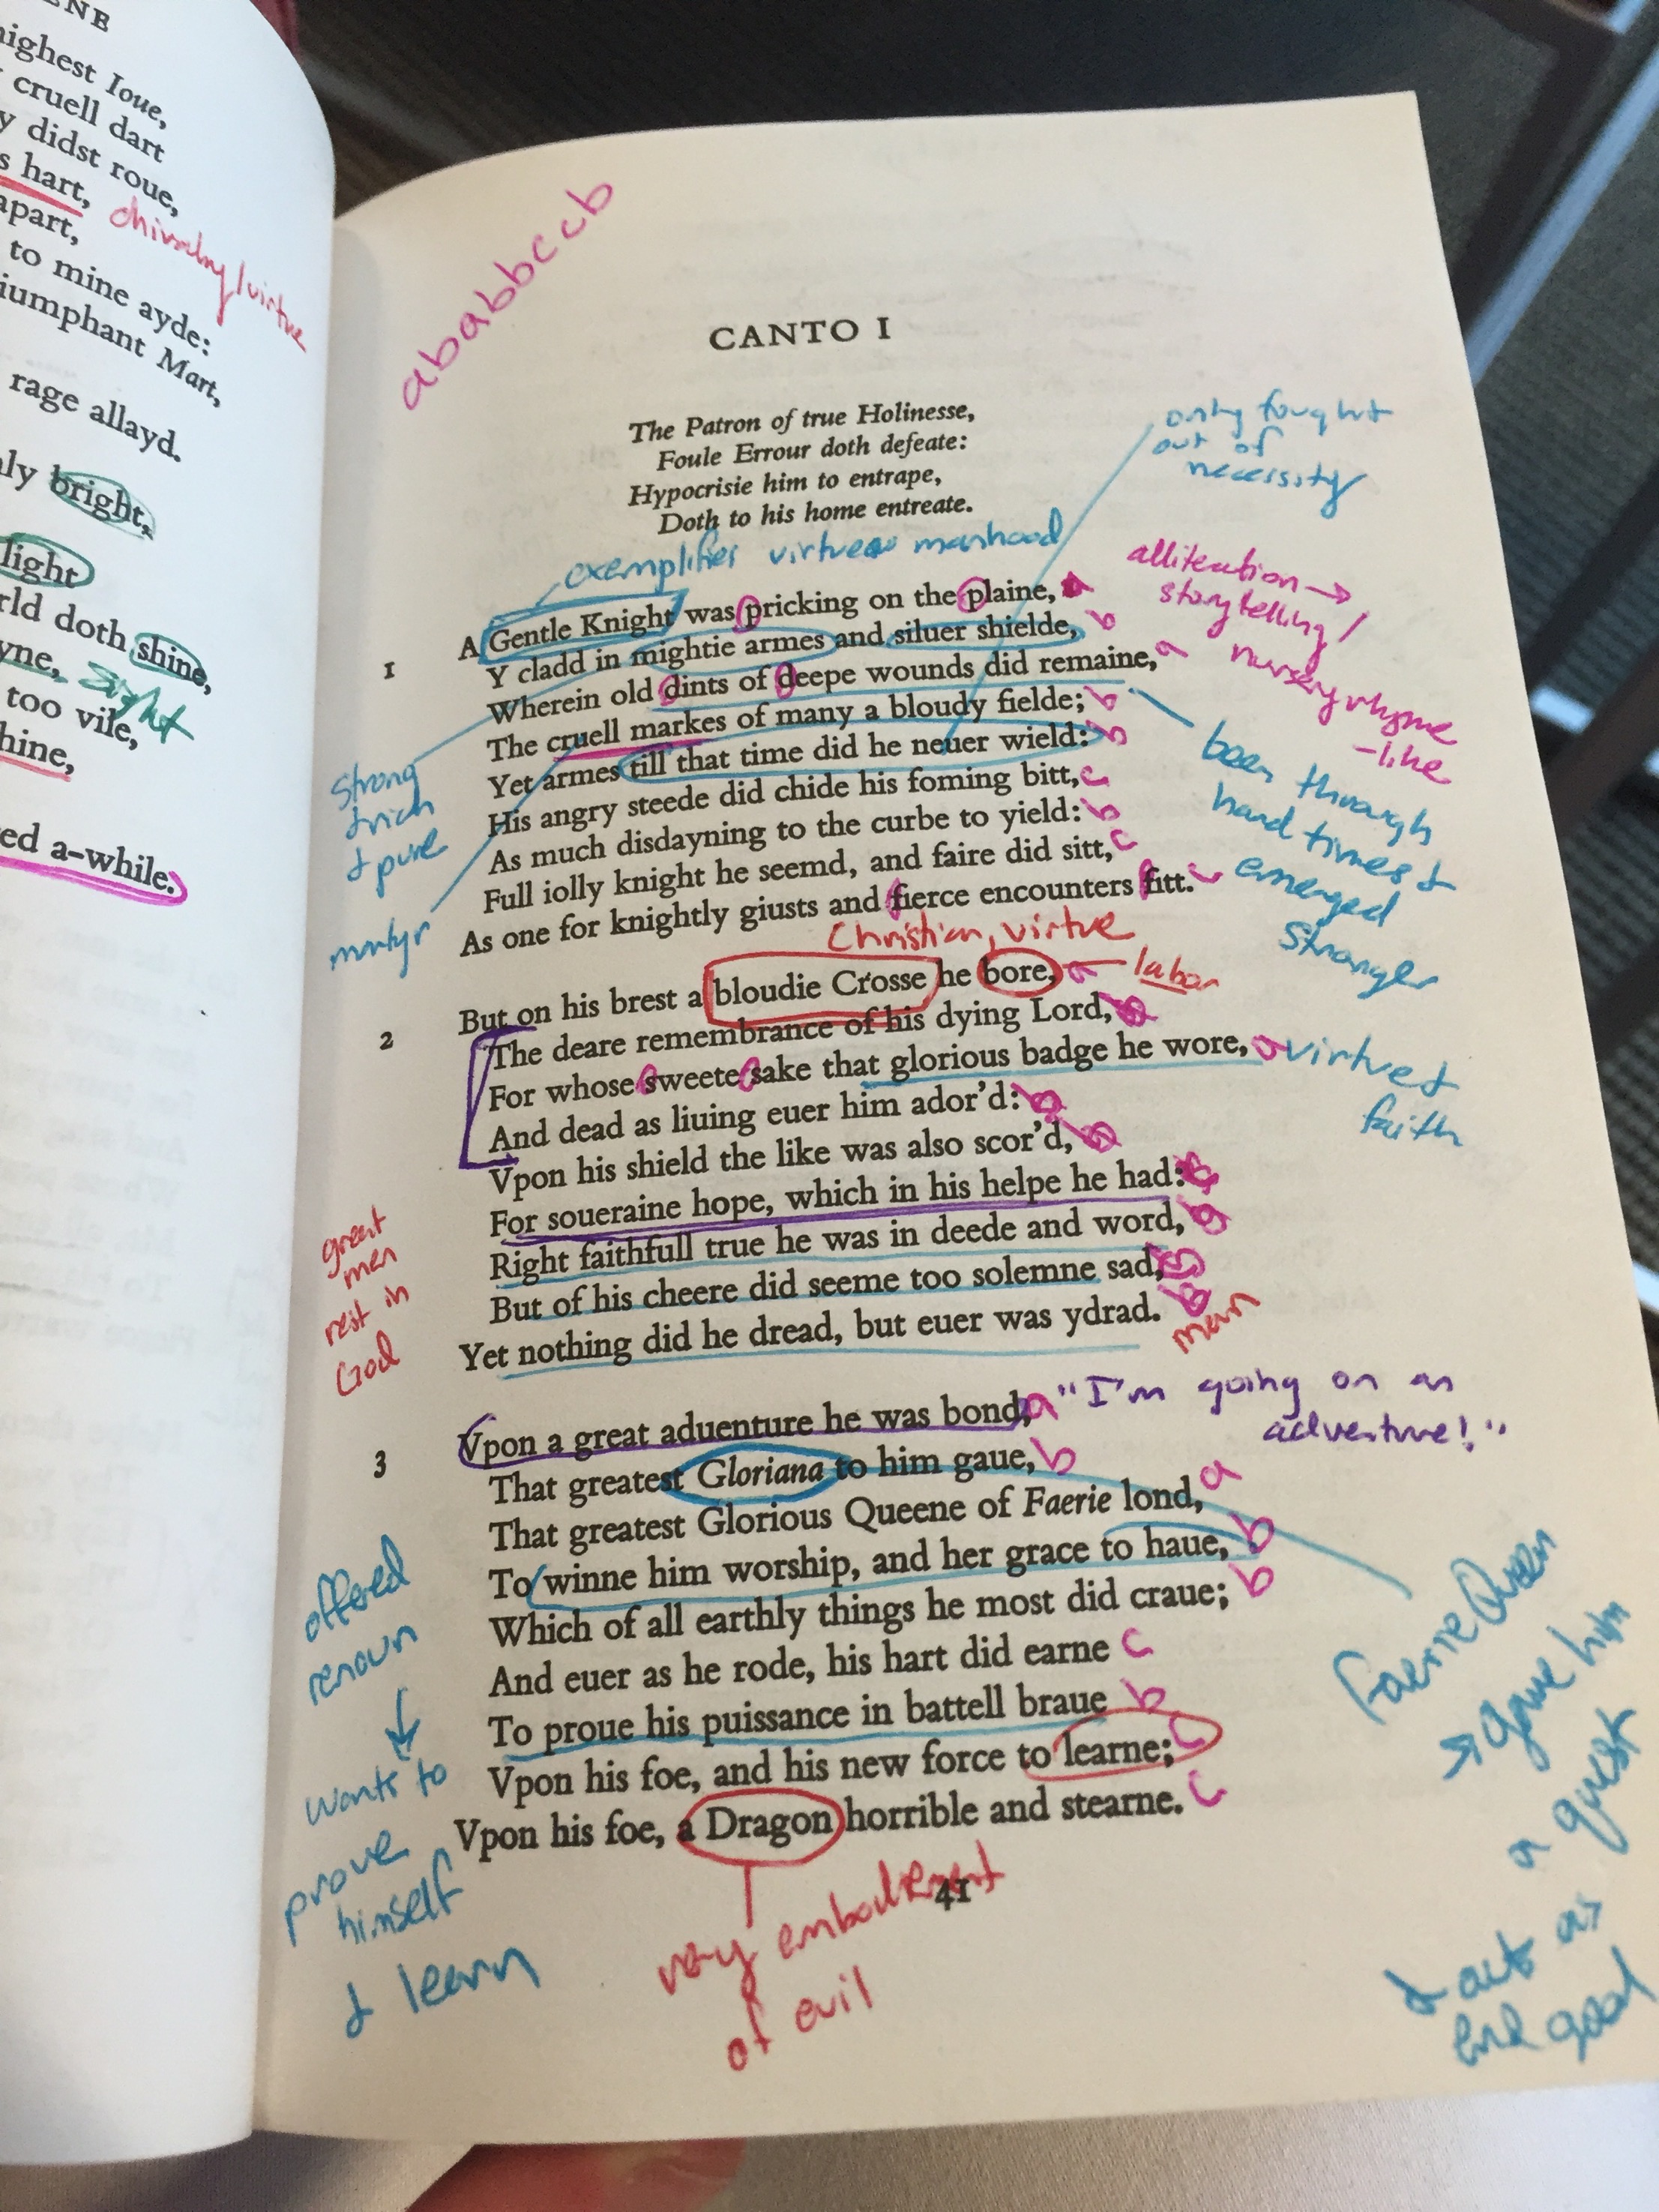 ENE
highest Ioue,
cruell dart
didst roue,
hart,
chivalry/virtue
apart,
to mine ayde:
iumphant Mart,
rage allayd.
bright,
light
rld doth shine,
sight
too vile,
hine,
ed a-while.
ababbccb
CANTO I
The Patron of true Holinesse,
Foule Errour doth defeate:
Hypocrisie him to entrape,
Doth to his home entreate.
only fought
out of
necessity
exemplifies virtue manhood
alliteration →
storytelling/
nursery rhyme
-like
1
A Gentle Knight was pricking on the plaine, a
Y cladd in mightie armes and siluer shielde, b
Wherein old dints of deepe wounds did remaine, a
The cruell markes of many a bloudy fielde; b
Yet armes till that time did he neuer wield: b
His angry steede did chide his foming bitt, c
As much disdayning to the curbe to yield: b
Full iolly knight he seemd, and faire did sitt, c
As one for knightly giusts and fierce encounters fitt. c
strong
& rich
& pure
martyr
been through
hard times &
emerged
stronger
Christian, virtue
2
But on his brest a bloudie Crosse he bore, a
labor
The deare remembrance of his dying Lord, b
For whose sweete sake that glorious badge he wore, a
virtue &
faith
And dead as liuing euer him ador'd: b
Vpon his shield the like was also scor'd, b
For soueraine hope, which in his helpe he had:
Right faithfull true he was in deede and word, b
But of his cheere did seeme too solemne sad,
Yet nothing did he dread, but euer was ydrad.
great
men
rest in
God
3
Vpon a great aduenture he was bond, a
"I'm going on an
adventure!"
That greatest Gloriana to him gaue, b
That greatest Glorious Queene of Faerie lond, a
To winne him worship, and her grace to haue, b
Which of all earthly things he most did craue; b
And euer as he rode, his hart did earne c
To proue his puissance in battell braue b
Vpon his foe, and his new force to learne; c
Vpon his foe, a Dragon horrible and stearne. c
offered
renown
↓
wants to
prove
himself
& learn
Faerie Queen
→ gave him
a quest
very embodiment
of evil
41